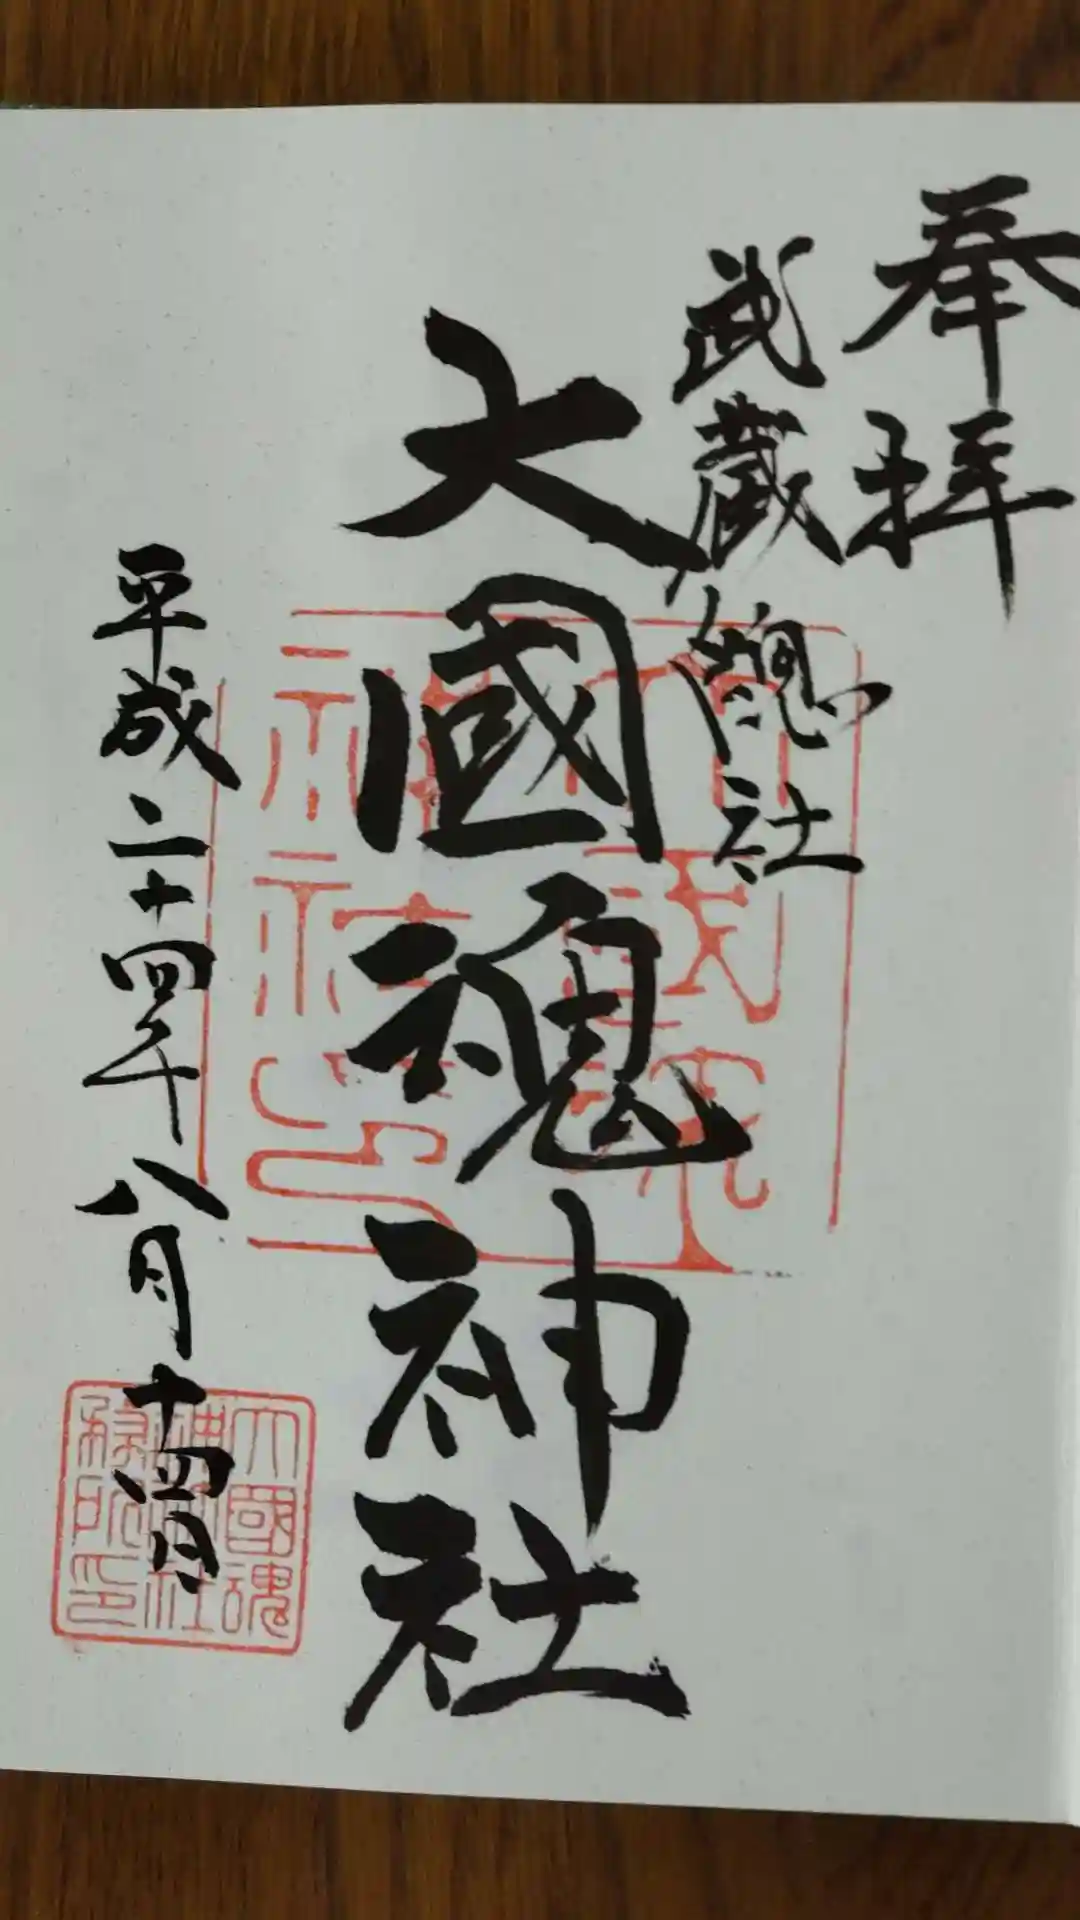 奉拝
武蔵總社
大國魂神社
平成二十四年八月十四日
大國魂
神社
印
大國魂
神社
務所印